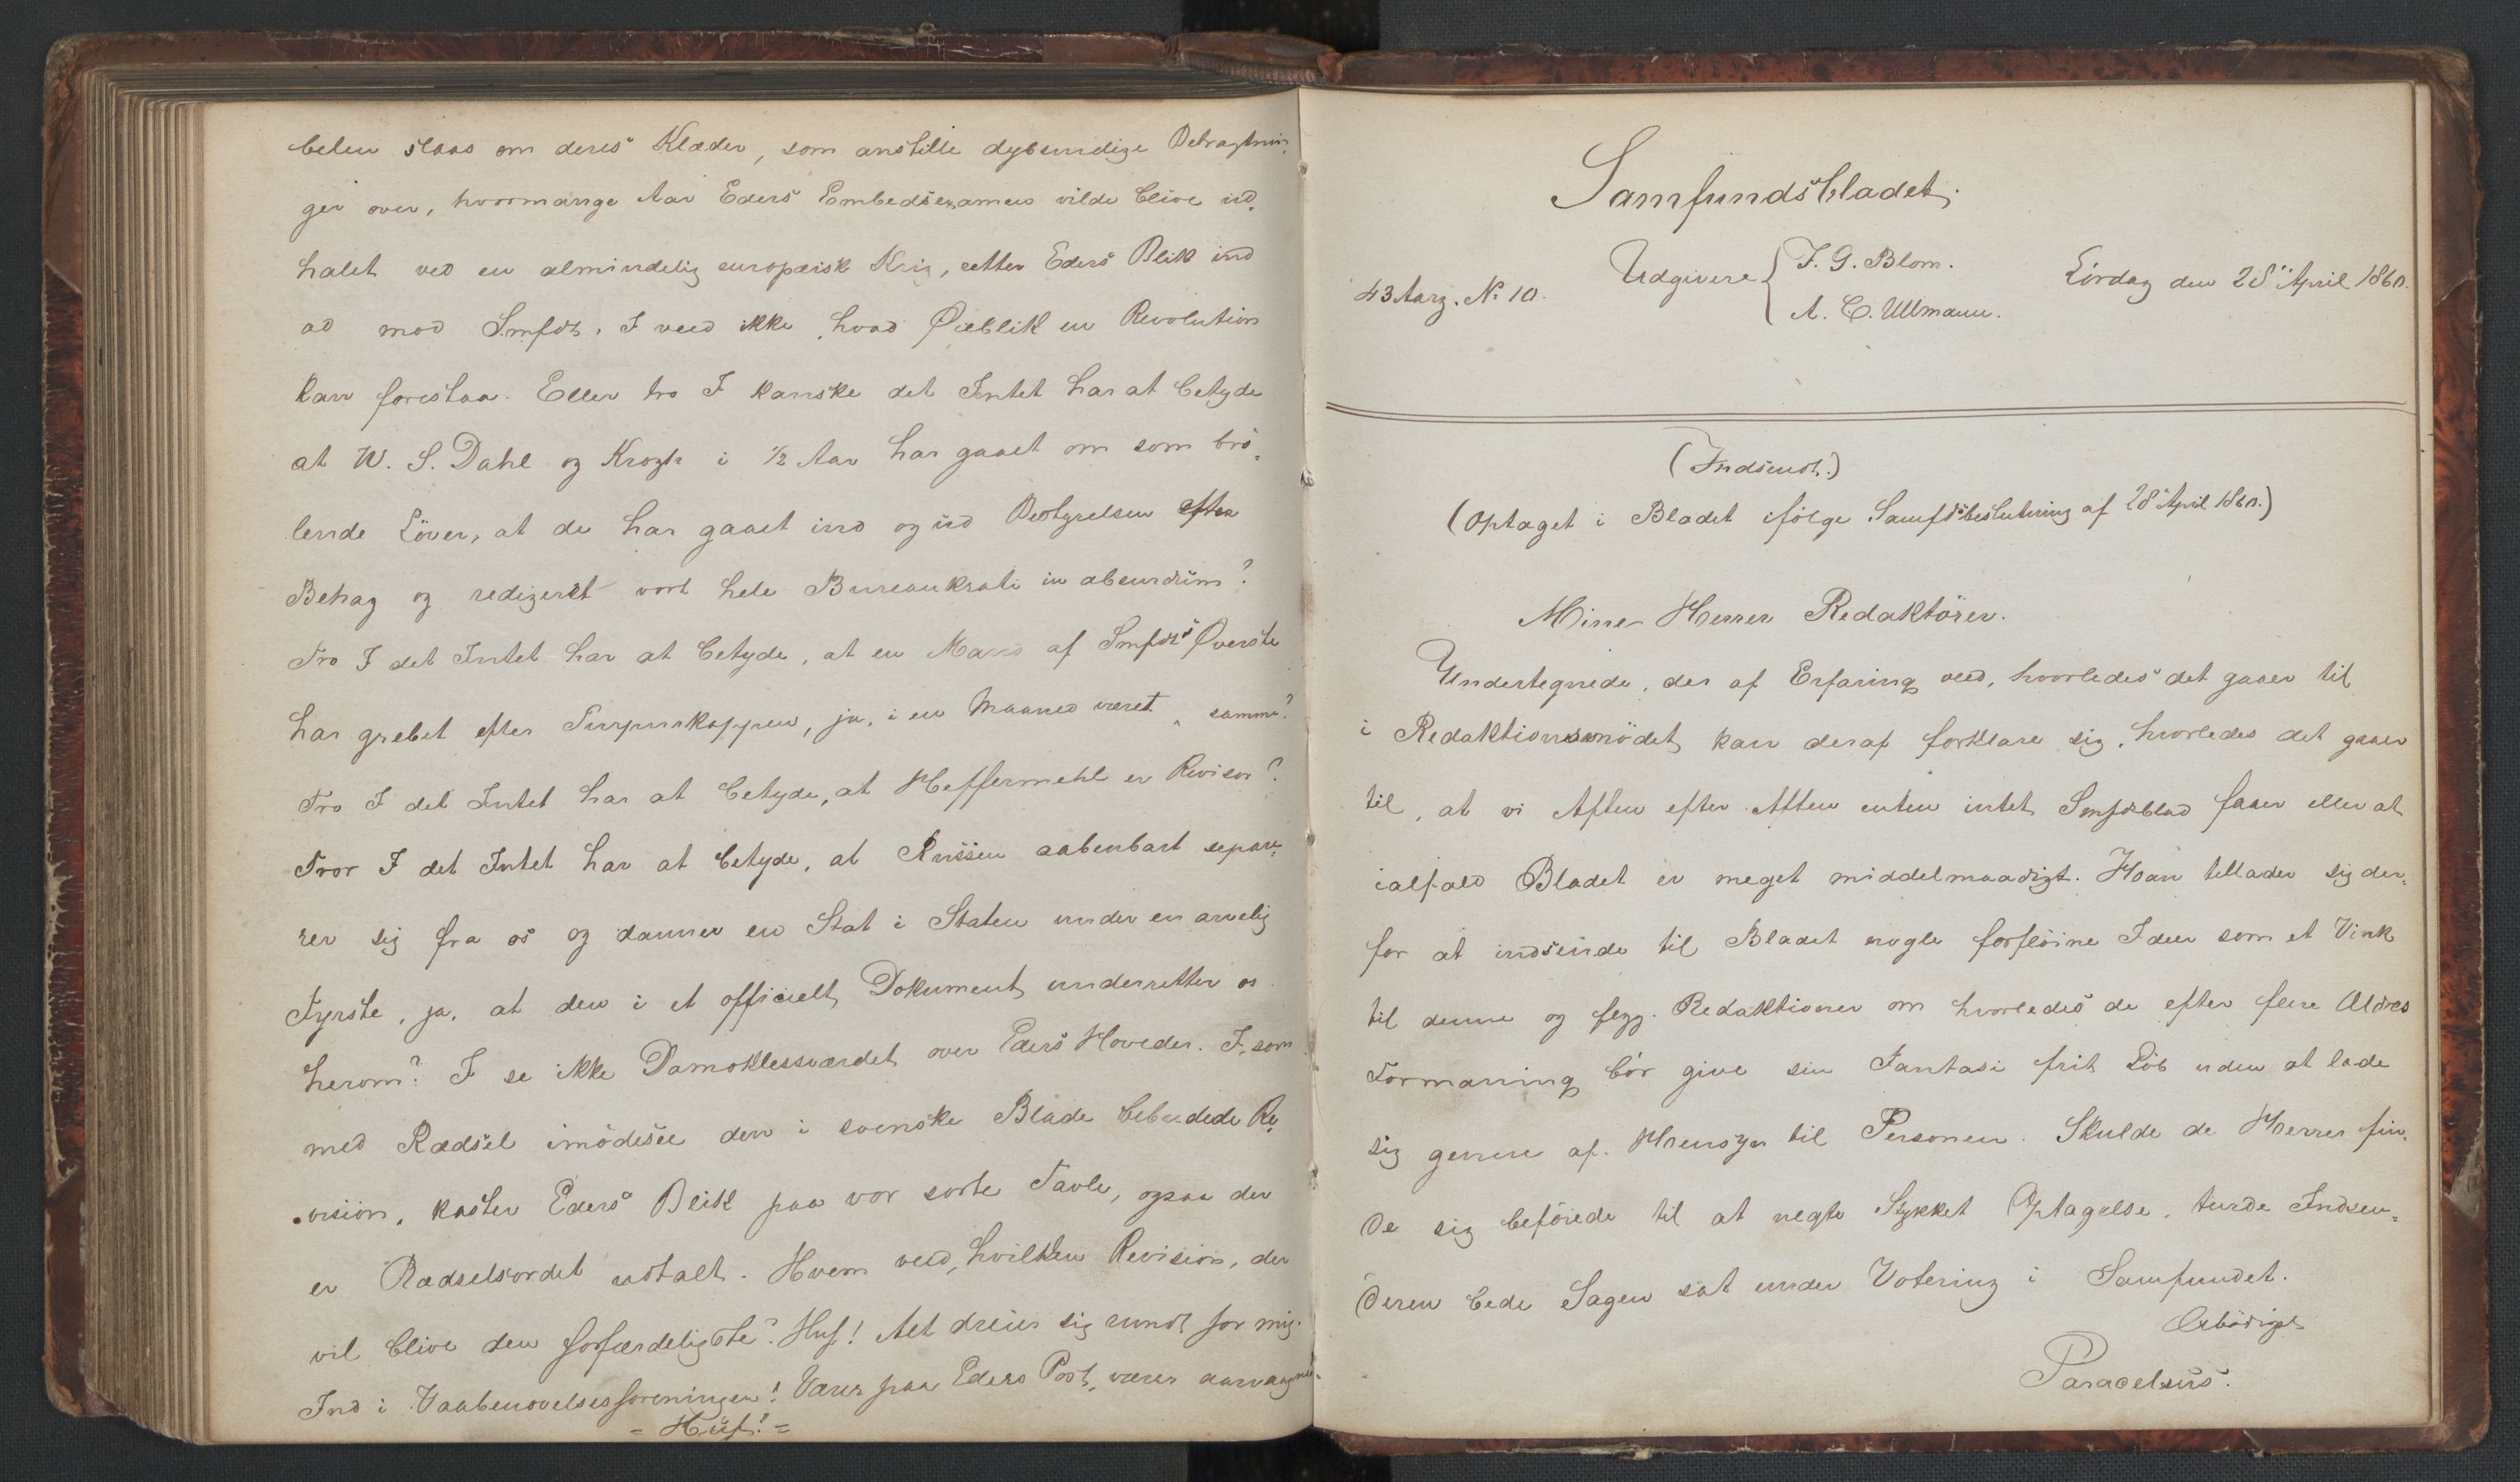 belen slaas om deres Klæder, som anstille dybsindige Betragtnin-
ger over, hvormange Aar Eders Embedsexamen vilde blive ud-
halet ved en almindelig europæisk Krig, retter Eders Blik ind
ad mod Smfdt. I veed ikke, hvad Øieblik en Revolution
kan forestaa. Eller tro I kanske det Intet har at betyde
at W. S. Dahl og Krogh i ½ Aar har gaaet om som brö-
lende Löver, at de har gaaet ind og ud Bestyrelsen efter
Behag og redigeret vort hele Bureaukrati in absurdum?
Tro I det Intet har at betyde, at en Mand af Smfdts Øverste
har grebet efter Purpurkappen, ja, i en Maaned været samme?
Tro I det Intet har at betyde, at Heffermehl er Revisor?
Tror I det Intet har at betyde, at Russen aabenbart separe-
rer sig fra os og danner en Stat i Staten under en arvelig
Fyrste, ja, at den i et officielt Dokument underretter os
herom? I se ikke Damoklessværdet over Eders Hoveder. I, som
med Rædsel imödesee den i svenske Blade bebudede Re-
vision, kaster Eders Blik paa vor sorte Tavle, ogsaa der
er Rædselsordet udtalt. Hvem veed, hvilken Revision, der
vil blive den forfærdeligste? Huf! Alt dreier sig rundt for mig.
Ind i Vaabenövelsesforeningen! Værer paa Eders Post, værer aarvaagne
= Huf! =
Samfundsbladet.
43 Aarg. No 10.
Udgivere { F. G. Blom.
A. C. Ullmann.
Lördag den 28de April 1860.
(Indsendt.)
(Optaget i Bladet ifölge Samfdsbeslutning af 28de April 1860.)
Mine Herrer Redaktörer.
Undertegnede, der af Erfaring veed, hvorledes det gaaer til
i Redaktionsmödet, kan deraf forklare sig, hvorledes det gaaer
til, at vi Aften efter Aften enten intet Smfdsblad faaer eller at
ialfald Bladet er meget middelmaadigt. Han tillader sig der-
for at indsende til Bladet nogle forflöine Ideer som et Vink
til denne og flgg. Redaktioner om hvorledes de efter flere Ældres
Formaning bör give sin Fantasi frit Löb uden at lade
sig genere af Hensyn til Personen. Skulde de Herrer fin-
de sig beföiede til at negte Stykket Optagelse, turde Indsen-
deren bede Sagen sat under Votering i Samfundet.
Ærbödigst
Paracelsus.